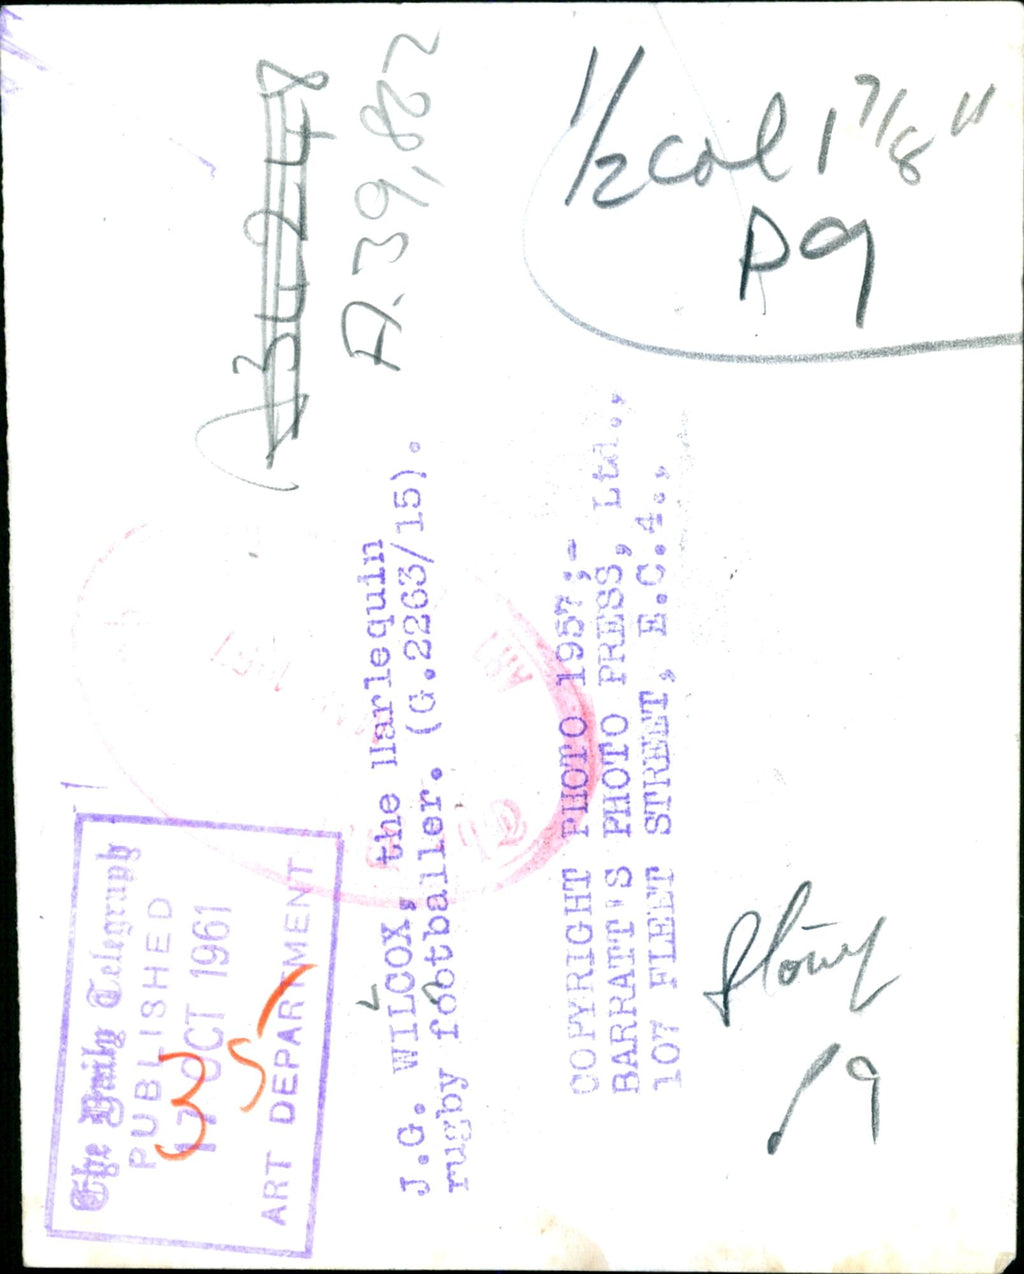 1/2 col 1 7/8"
P9
A34248
A.39,882
J.G. WILCOX, the Harlequin
rugby footballer. (G.2263/15).
COPYRIGHT PHOTO 1957;-
BARRATT'S PHOTO PRESS, Ltd.,
107 FLEET STREET, E.C.4.,
The Daily Telegraph
PUBLISHED
17 OCT 1961
ART DEPARTMENT
35/
19